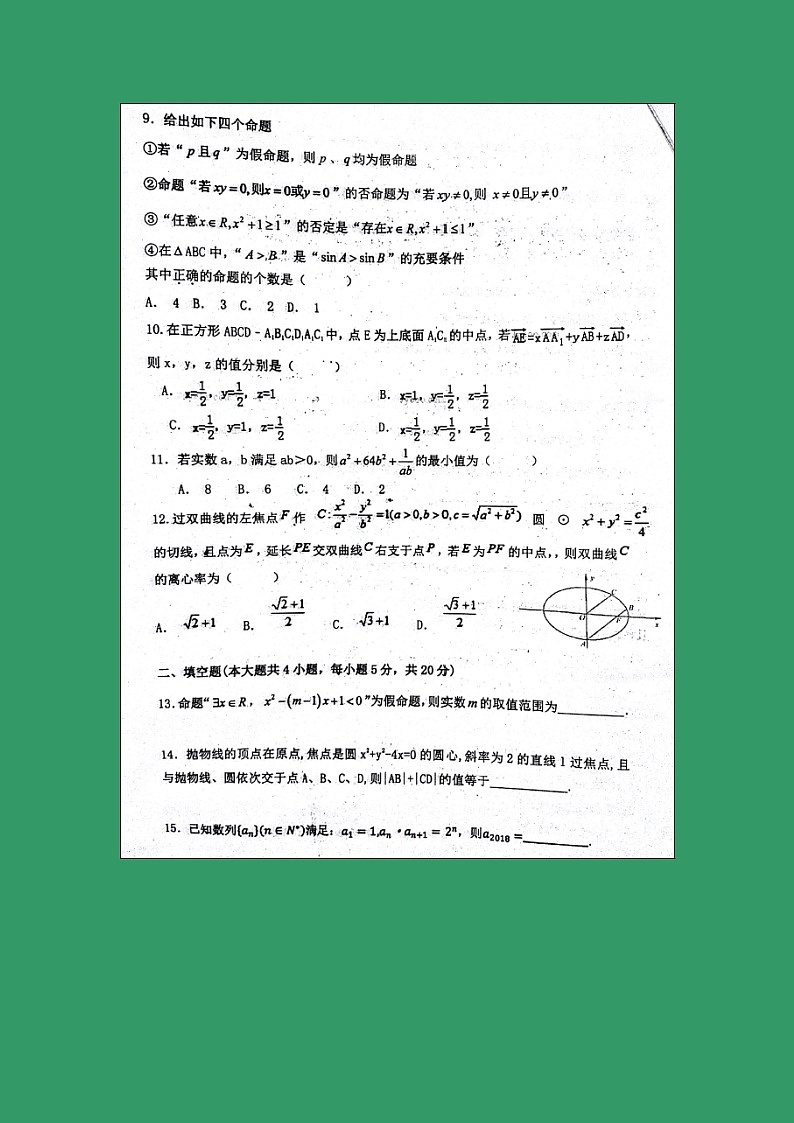 9．给出如下四个命题
①若“p且q”为假命题，则p、q均为假命题
②命题“若xy=0,则x=0或y=0”的否命题为“若xy≠0,则 x≠0且y≠0”
③“任意x∈R,x²+1≥1”的否定是“存在x∈R,x²+1≤1”
④在ΔABC中，“A＞B”是“sinA＞sinB”的充要条件
其中正确的命题的个数是（ ）
A． 4 B． 3 C． 2 D． 1
10.在正方形ABCD﹣A₁B₁C₁D₁A₁C₁中，点E为上底面A₁C₁的中点，若AE=xAA₁+yAB+zAD，
则x，y，z的值分别是（ ）
A．x=1/2，y=1/2，z=1 B．x=1，y=1/2，z=1/2
C．x=1/2，y=1，z=1/2 D．x=1/2，y=1/2，z=1/2
11．若实数a，b满足ab＞0，则a²+64b²+1/ab的最小值为（ ）
A． 8 B． 6 C． 4 D． 2
12.过双曲线的左焦点F作 C:x²/a²-y²/b²=1(a>0,b>0,c=√(a²+b²)) 圆 ⊙ x²+y²=c²/4
的切线，且点为E，延长PE交双曲线C右支于点P，若E为PF的中点，，则双曲线C
的离心率为（ ）
A． √2+1 B． (√2+1)/2 C． √3+1 D． (√3+1)/2
y
C
B
O
F
x
A
二、填空题(本大题共4小题，每小题5分，共20分)
13.命题“∃x∈R，x²-(m-1)x+1<0”为假命题,则实数m的取值范围为________.
14．抛物线的顶点在原点,焦点是圆x²+y²-4x=0的圆心,斜率为2的直线l过焦点,且
与抛物线、圆依次交于点A、B、C、D,则|AB|+|CD|的值等于________.
15．已知数列{aₙ}(n∈N*)满足：a₁=1,aₙ·aₙ₊₁=2ⁿ，则a₂₀₁₈=________.